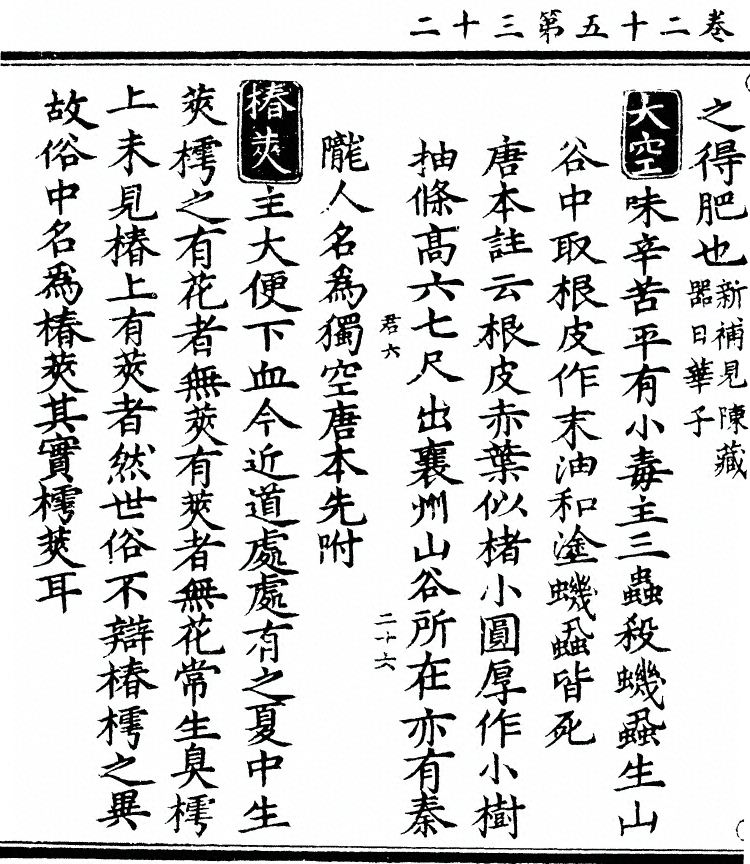 卷二十五第三十二
之得肥也新補見陳藏器日華子
大空味辛苦平有小毒主三蟲殺蟣蝨生山
谷中取根皮作末油和塗蟣蝨皆死
唐本註云根皮赤葉似楮小圓厚作小樹
抽條高六七尺出襄州山谷所在亦有秦
君六
二十六
隴人名為獨空唐本先附
椿莢主大便下血今近道處處有之夏中生
莢樗之有花者無莢有莢者無花常生臭樗
上未見椿上有莢者然世俗不辯椿樗之異
故俗中名為椿莢其實樗莢耳